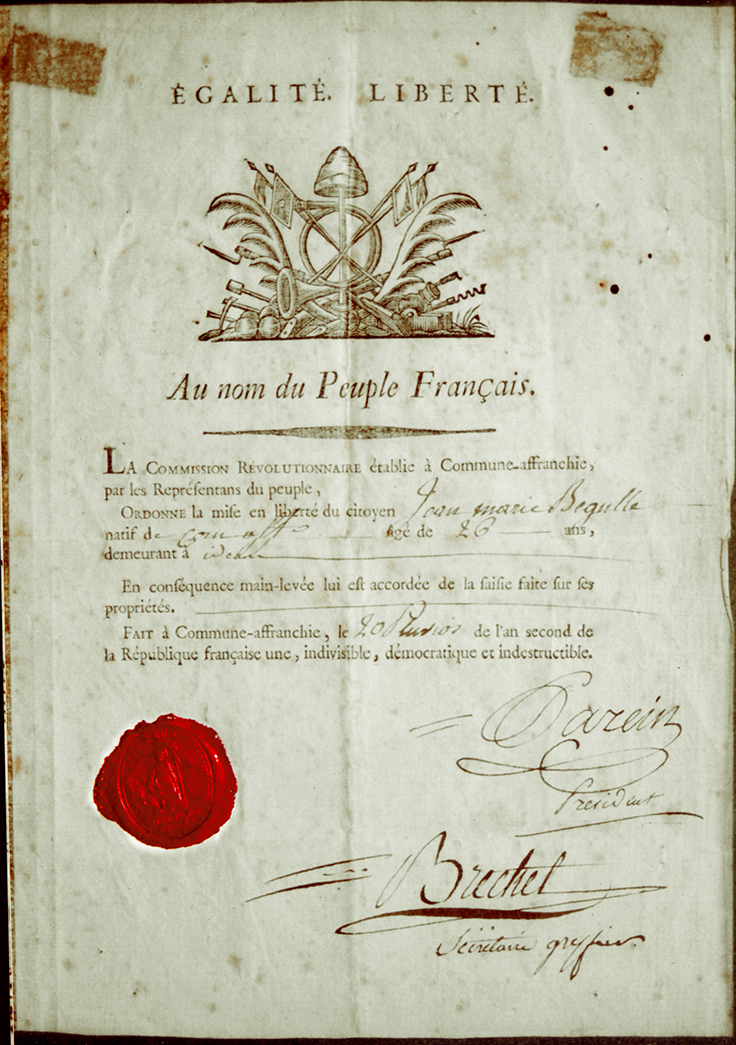 ÉGALITÉ. LIBERTÉ.
Au nom du Peuple Français.
LA COMMISSION RÉVOLUTIONNAIRE établie à Commune-affranchie,
par les Représentans du peuple,
ORDONNE la mise en liberté du citoyen Jean marie Begulle
natif de com aff âgé de 26 ans,
demeurant à idem
En conséquence main-levée lui est accordée de la saisie faite sur ses
propriétés.
FAIT à Commune-affranchie, le 20 Pluviôs de l'an second de
la République française une, indivisible, démocratique et indestructible.
Parein
Président
Brechet
Sécrétaire greffier